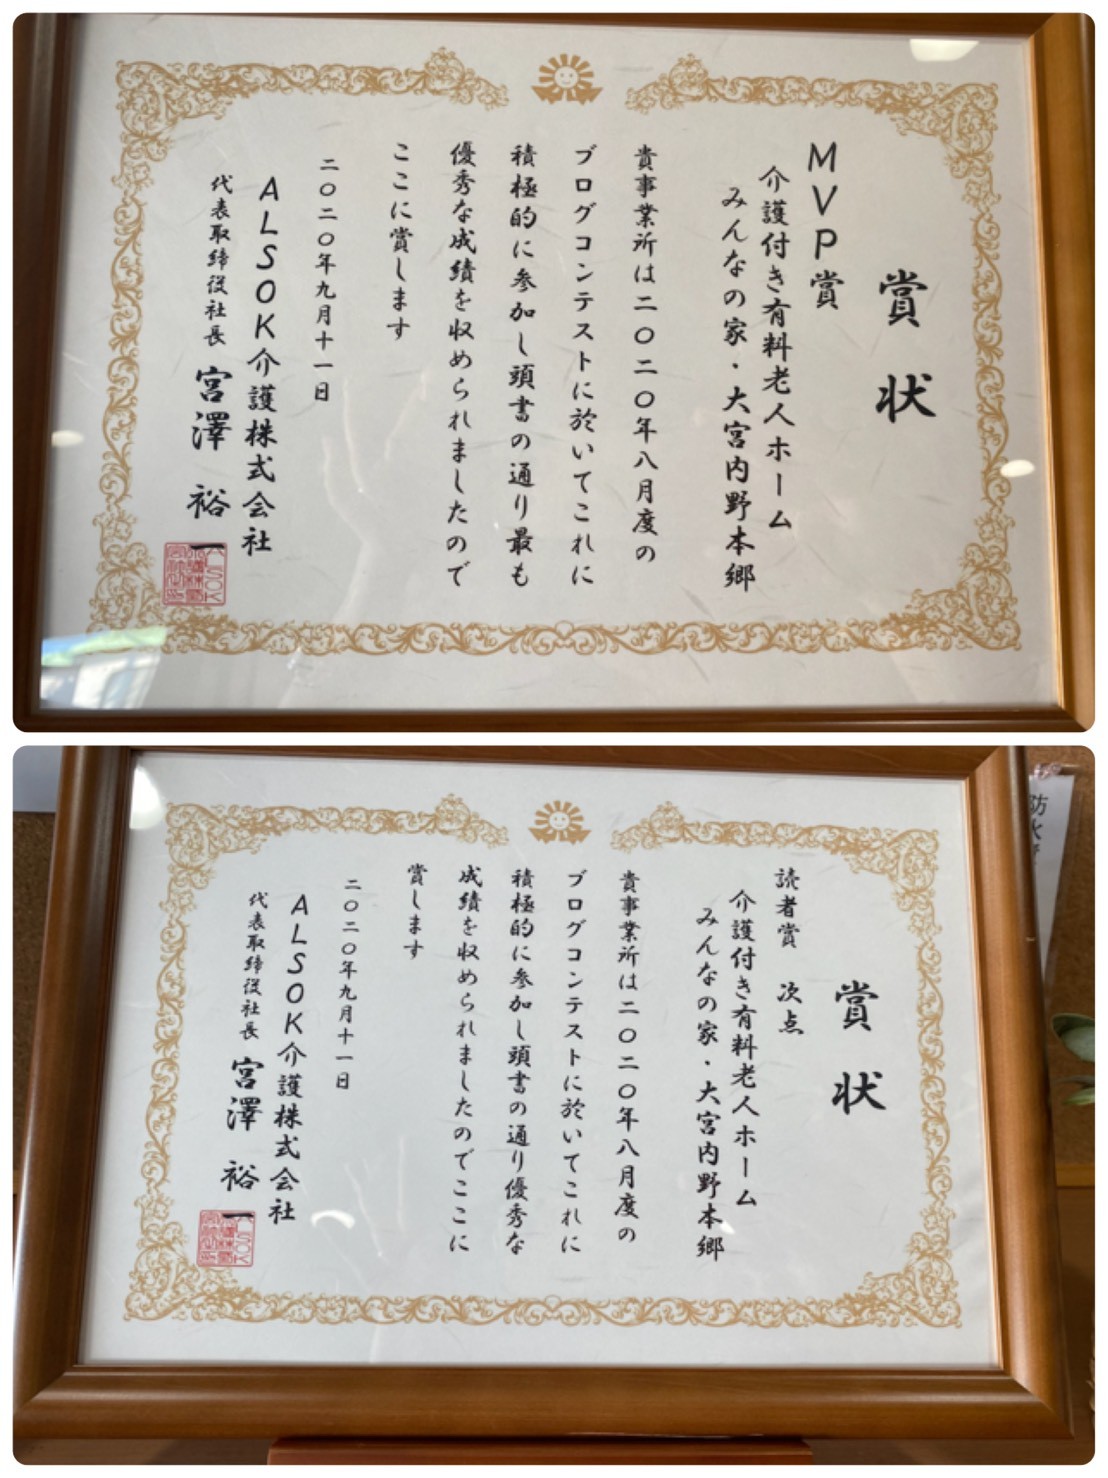 賞状
MVP賞
介護付き有料老人ホーム
みんなの家・大宮内野本郷
貴事業所は二〇二〇年八月度の
ブログコンテストに於いてこれに
積極的に参加し頭書の通り最も
優秀な成績を収められましたので
ここに賞します
二〇二〇年九月十一日
ALSOK介護株式会社
代表取締役社長 宮澤 裕一
賞状
読者賞 次点
介護付き有料老人ホーム
みんなの家・大宮内野本郷
貴事業所は二〇二〇年八月度の
ブログコンテストに於いてこれに
積極的に参加し頭書の通り優秀な
成績を収められましたのでここに
賞します
二〇二〇年九月十一日
ALSOK介護株式会社
代表取締役社長 宮澤 裕一
防火